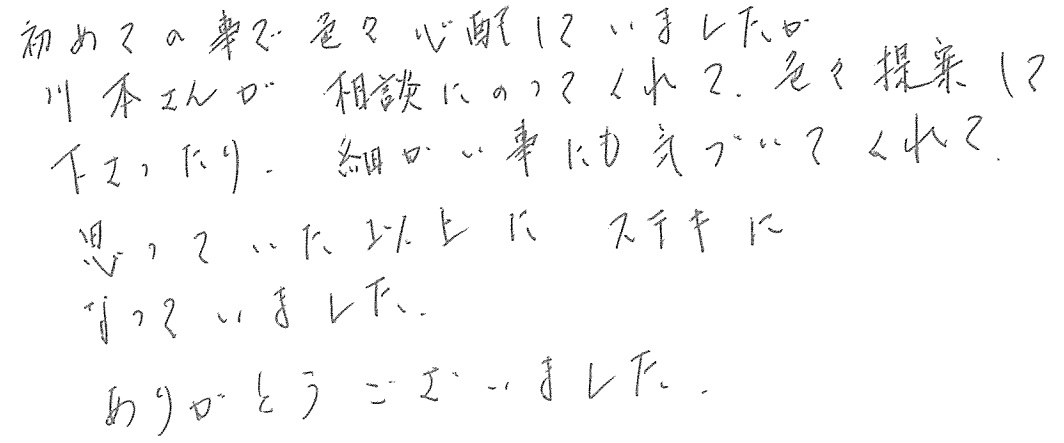 初めての事で色々心配していましたが
川本さんが 相談にのってくれて、色々提案して
下さったり、細かい事にも気づいてくれて、
思っていた以上に ステキに
なっていました。
ありがとうございました。